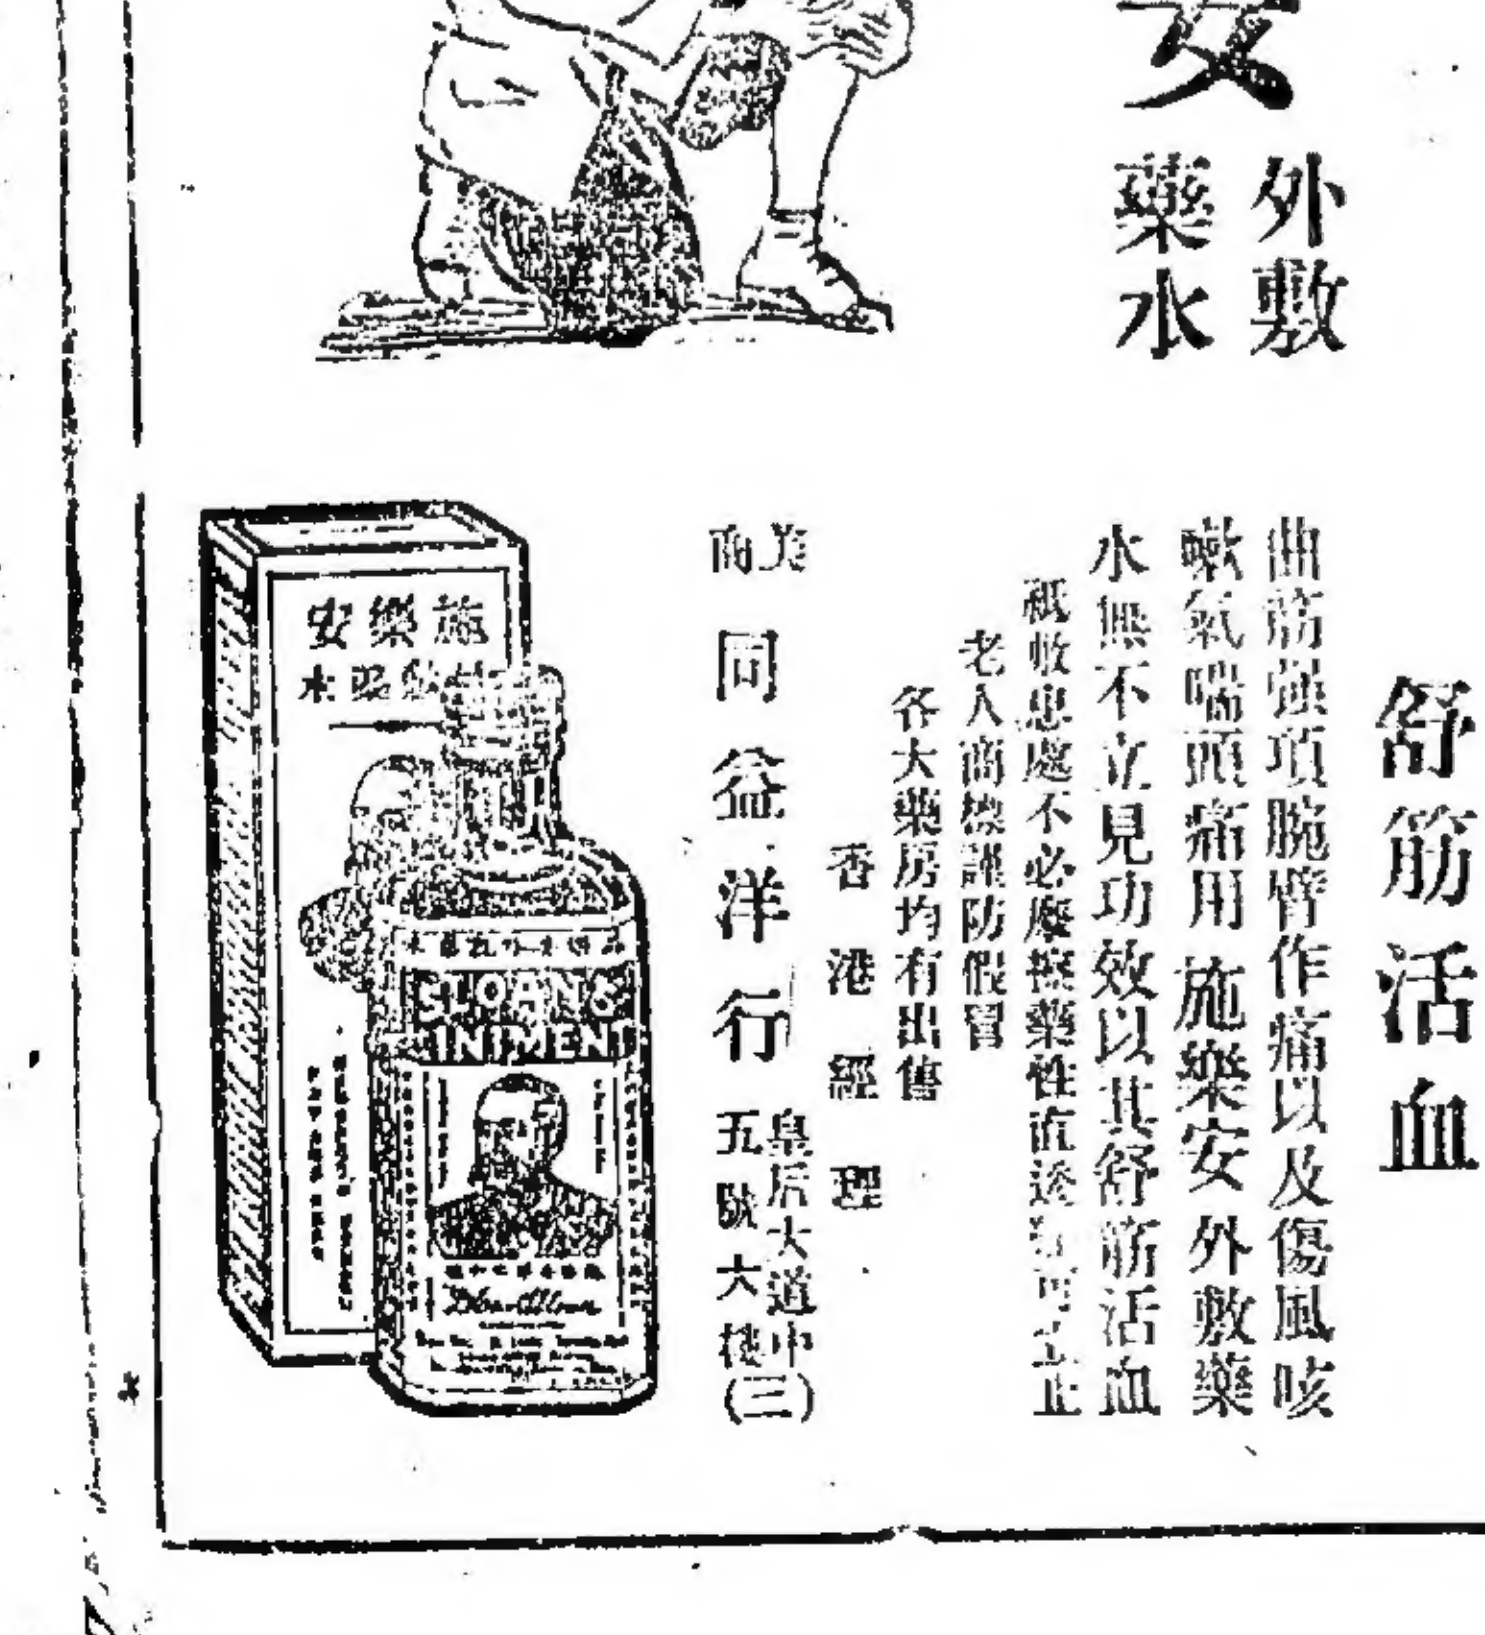 安
外敷
藥水
舒筋活血
曲筋強項腕臂作痛以及傷風咳
嗽氣喘頭痛用施樂安外敷藥
水無不立見功效以其舒筋活血
祇敷患處不必摩擦藥性直透
老人商標謹防假冒
各大藥房均有出售
香港經理
美商
同益洋行
皇后大道中
五號六樓
(三)
施樂安
SLOAN'S
LINIMENT